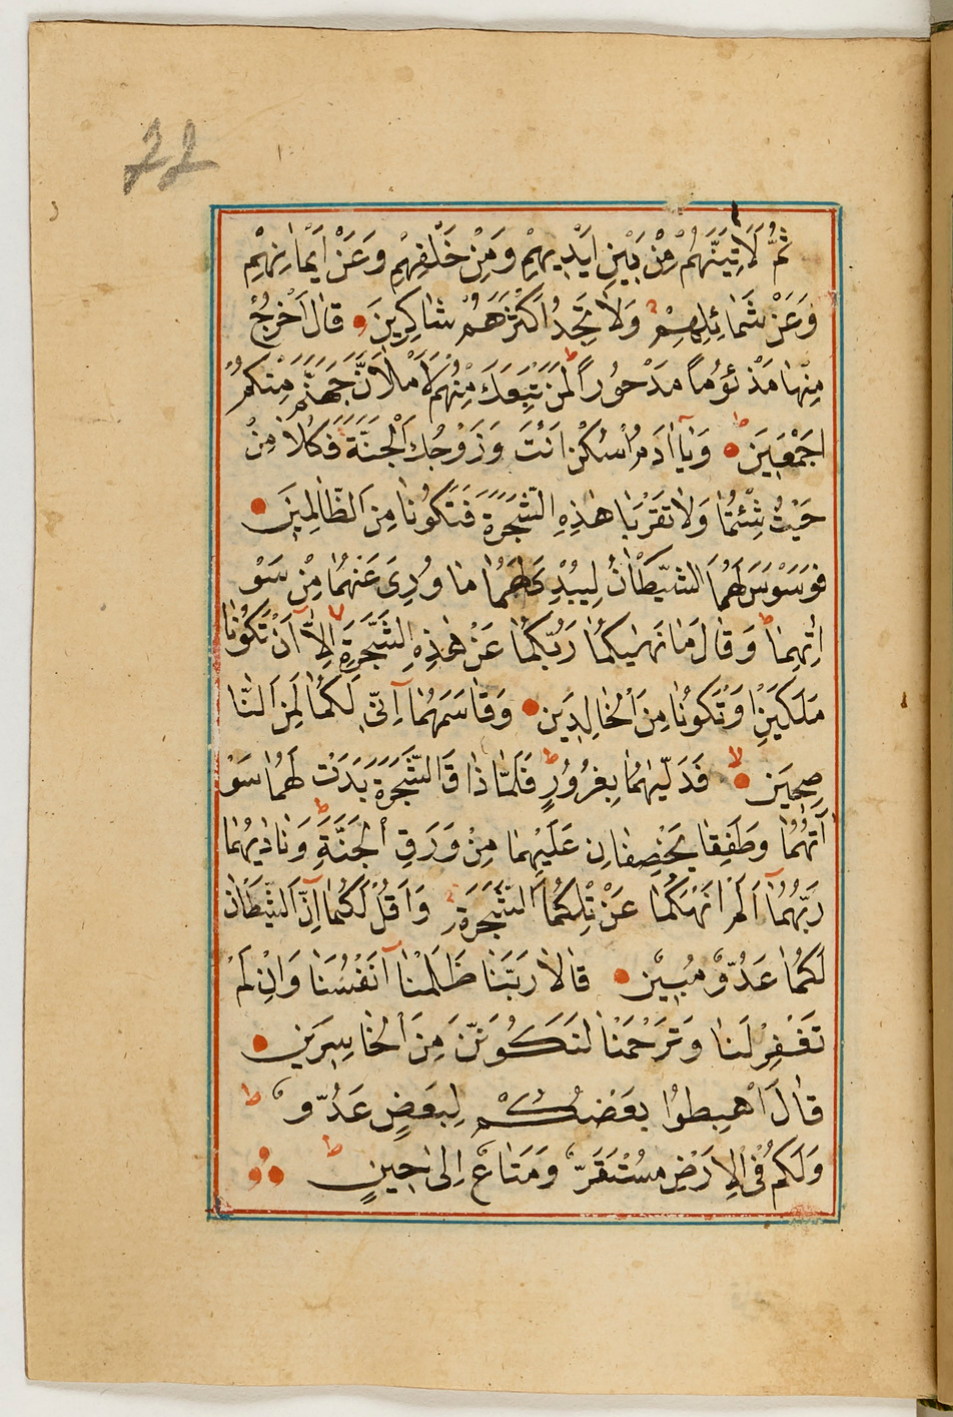 22
ثُمَّ لَاٰتِيَنَّهُمْ مِنْ بَيْنِ اَيْدِيهِمْ وَمِنْ خَلْفِهِمْ وَعَنْ اَيْمَانِهِمْ
وَعَنْ شَمَائِلِهِمْ وَلَا تَجِدُ اَكْثَرَهُمْ شَاكِرِينَ قَالَ اَخْرُجْ
مِنْهَا مَذْئُومًا مَدْحُورًا لَمَنْ تَبِعَكَ مِنْهُمْ لَاَمْلَاَنَّ جَهَنَّمَ مِنْكُمْ
اَجْمَعِينَ وَيَآاٰدَمُ اْسْكُنْ اَنْتَ وَزَوْجُكَ الْجَنَّةَ فَكُلَا مِنْ
حَيْثُ شِئْتُمَا وَلَا تَقْرَبَا هٰذِهِ الشَّجَرَةَ فَتَكُونَا مِنَ الظَّالِمِينَ
فَوَسْوَسَ لَهُمَا الشَّيْطَانُ لِيُبْدِيَ لَهُمَا مَا وُرِيَ عَنْهُمَا مِنْ سَوْ
اٰتِهِمَا وَقَالَ مَا نَهٰيكُمَا رَبُّكُمَا عَنْ هٰذِهِ الشَّجَرَةِ اِلَّآ اَنْ تَكُونَا
مَلَكَيْنِ اَوْ تَكُونَا مِنَ الْخَالِدِينَ وَقَاسَمَهُمَآ اِنِّي لَكُمَا لَمِنَ النَّا
صِحِينَ فَدَلّٰيهُمَا بِغُرُورٍ فَلَمَّا ذَاقَا الشَّجَرَةَ بَدَتْ لَهُمَا سَوْ
اٰتُهُمَا وَطَفِقَا يَخْصِفَانِ عَلَيْهِمَا مِنْ وَرَقِ الْجَنَّةِ وَنَادٰيهُمَا
رَبُّهُمَآ اَلَمْ اَنْهَكُمَا عَنْ تِلْكُمَا الشَّجَرَةِ وَاَقُلْ لَكُمَآ اِنَّ الشَّيْطَانَ
لَكُمَا عَدُوٌّ مُبِينٌ قَالَا رَبَّنَا ظَلَمْنَآ اَنْفُسَنَا وَاِنْ لَمْ
تَغْفِرْ لَنَا وَتَرْحَمْنَا لَنَكُونَنَّ مِنَ الْخَاسِرِينَ
قَالَ اهْبِطُوا بَعْضُكُمْ لِبَعْضٍ عَدُوٌّ
وَلَكُمْ فِي الْاَرْضِ مُسْتَقَرٌّ وَمَتَاعٌ اِلٰى حِينٍ